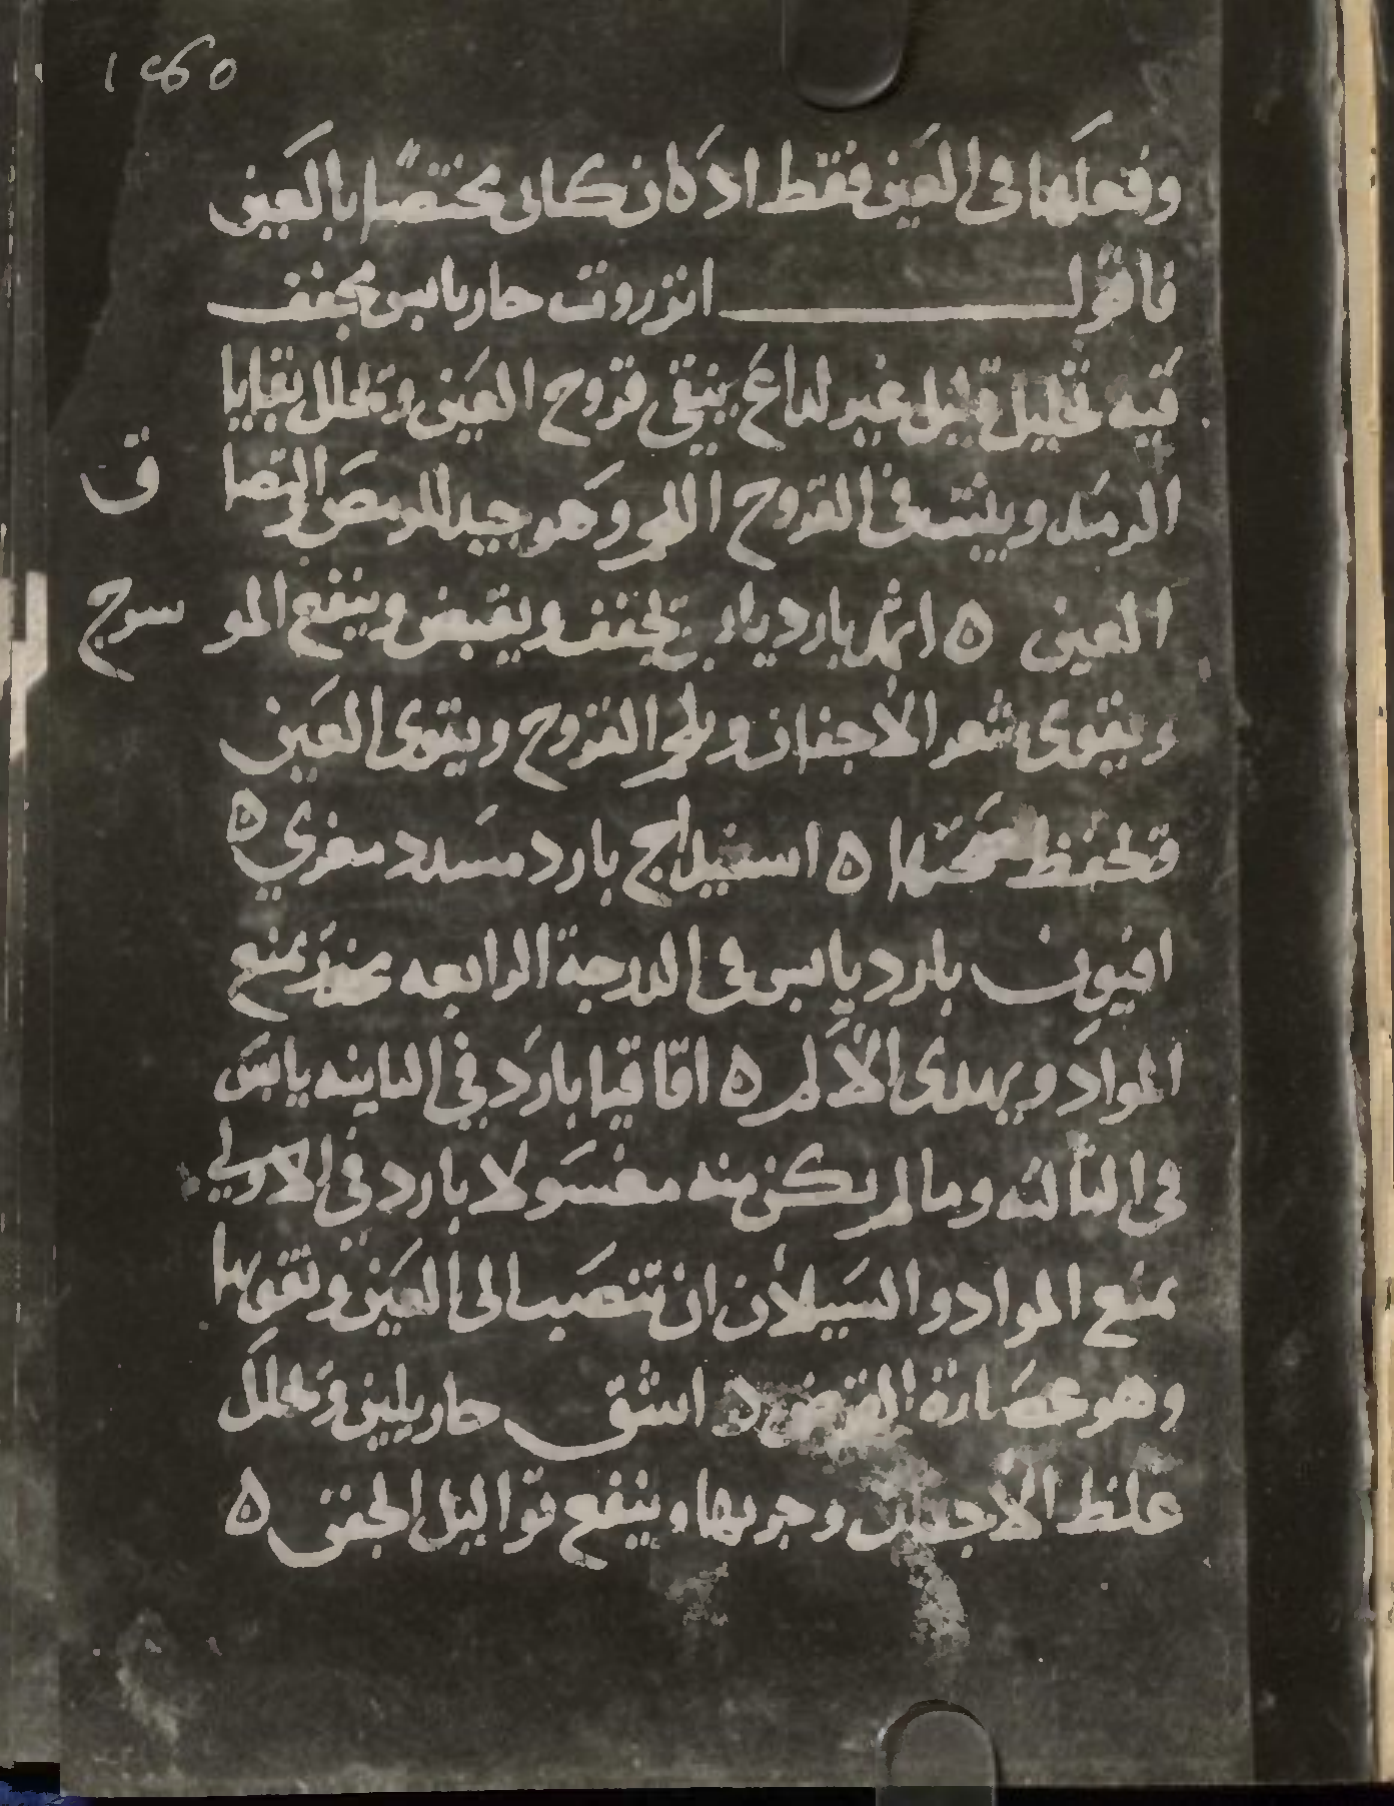 ١٤٥
وفعلها فى العين فقط اذ كان كتابى مختصًا بالعين
فاقول انزروت حار يابس مجفف
فيه تحليل قليل غير لداع ينقى قروح العين ويحلل بقايا
الرمد وينبت فى القروح اللحم وهو جيد للرمص والتصا ق
العين ه اثمد بارد يابس يجفف ويقبض وينفع المو سرج
ويقوى شعر الاجفان ويلحم القروح ويقوى العين
ويحفظ صحتها ه اسفيداج بارد مسدد مغري ه
افيون بارد يابس فى الدرجة الرابعه مخدر يمنع
المواد ويهدى الالم ه اقاقيا بارد في الثانيه يابس
فى الثالثه وما لم يكن منه مغسولا بارد فى الاولى
يمنع المواد والسيلان ان تنصب الى العين وتقويها
وهو عصارة القرض ه اشق حار يلين ويحلل
غلظ الاجفان وجربها وينفع ثواليل الجفن ه